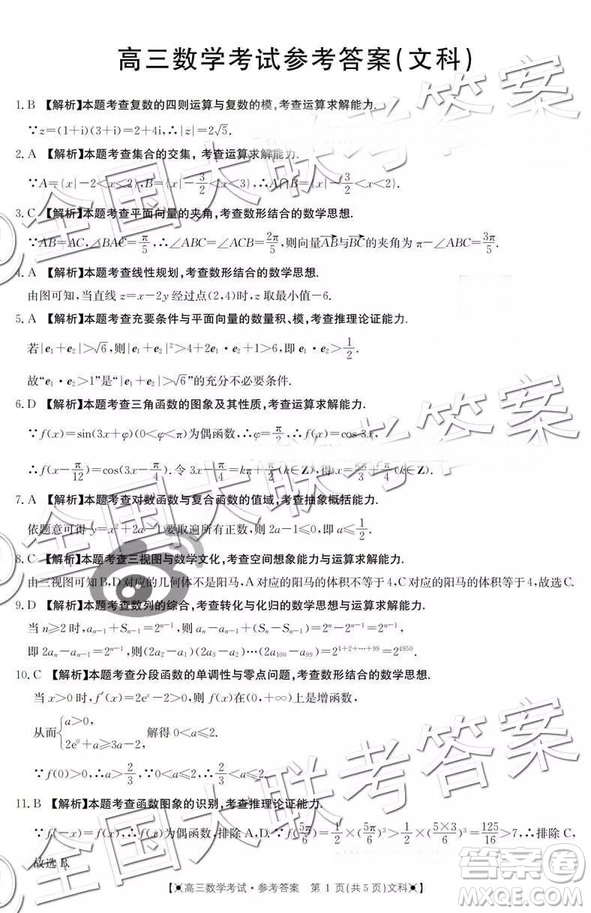 高三数学考试参考答案(文科)
1. B 【解析】本题考查复数的四则运算与复数的模,考查运算求解能力.
∵z=(1+i)(3+i)=2+4i,∴|z|=2√5.
2. A 【解析】本题考查集合的交集,考查运算求解能力.
∵A={x|-2<x<2},B={x|-3/2<x<3},∴A∩B={x|-3/2<x<2}.
3. C 【解析】本题考查平面向量的夹角,考查数形结合的数学思想.
∵AB=AC,∠BAC=π/5,∴∠ABC=∠ACB=2π/5,则向量AB与BC的夹角为π-∠ABC=3π/5.
4. A 【解析】本题考查线性规划,考查数形结合的数学思想.
由图可知,当直线z=x-2y经过点(2,4)时,z取最小值-6.
5. A 【解析】本题考查充要条件与平面向量的数量积、模,考查推理论证能力.
若|e₁+e₂|>√6,则|e₁+e₂|²>4+2e₁·e₂+1>6,即e₁·e₂>1/2.
故“e₁·e₂>1”是“|e₁+e₂|>√6”的充分不必要条件.
6. D 【解析】本题考查三角函数的图象及其性质,考查运算求解能力.
∵f(x)=sin(3x+φ)(0<φ<π)为偶函数,∴φ=π/2,∴f(x)=cos 3x,
∴f(x-π/12)=cos(3x-π/4).令3x-π/4=kπ(k∈Z),得x=π/12+kπ/3(k∈Z).
7. A 【解析】本题考查对数函数与复合函数的值域,考查抽象概括能力.
依题意可得y=x²+2a-1要取遍所有正数,则2a-1≤0,即a≤1/2.
8. C 【解析】本题考查三视图与数学文化,考查空间想象能力与运算求解能力.
由三视图可知B,D对应的几何体不是阳马,A对应的阳马的体积不等于4,C对应的阳马的体积等于4,故选C.
9. D 【解析】本题考查数列的综合,考查转化与化归的数学思想与运算求解能力.
当n≥2时,aₙ₋₁+Sₙ₋₁=2ⁿ⁻¹,则aₙ+Sₙ-(aₙ₋₁+Sₙ₋₁)=2ⁿ-2ⁿ⁻¹=2ⁿ⁻¹,
即2aₙ-aₙ₋₁=2ⁿ⁻¹,则(2a₂-a₁)(2a₃-a₂)…(2a₁₀₀-a₉₉)=2¹⁺²⁺…⁺⁹⁹=2⁴⁹⁵⁰.
10. C 【解析】本题考查分段函数的单调性与零点问题,考查数形结合的数学思想.
当x>0时,f′(x)=2eˣ-2>0,则f(x)在(0,+∞)上是增函数,
从而{a>0, 2e⁰+a≥3a, 解得0<a≤2.
∵f(0)>0,∴a>2/3,∴2/3<a≤2.
11. B 【解析】本题考查函数图象的识别,考查推理论证能力.
∵f(-x)=f(x),∴f(x)为偶函数,排除A,D.∵f(5π/6)=1/2×(5π/6)³>1/2×(5×3/6)³=125/16>7,∴排除C,
故选B.
高三数学考试·参考答案 第1页(共5页)文科
全国大联考答案
全国大联考答案
全国大联考答案
模考卷
MXQE.COM